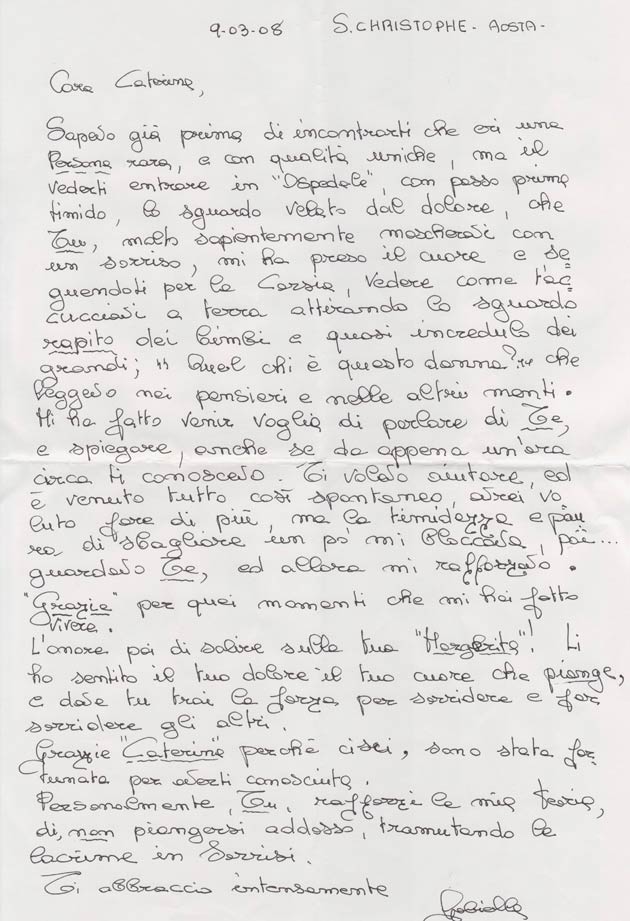 9-03-08 S. CHRISTOPHE - AOSTA -
Cara Caterina,
Sapevo già prima di incontrarti che eri una
Persona rara, e con qualità uniche, ma il
vederti entrare in "Ospedale", con passo prima
timido, lo sguardo velato dal dolore, che
Tu, molto sapientemente mascheravi con
un sorriso, mi ha preso il cuore e se
guendoti per la Corsia, vedere come t'ac
cucciavi a terra attirando lo sguardo
rapito dei bimbi e quasi incredulo dei
grandi; "chi è questa donna?" che
leggevo nei pensieri e nelle altrui menti.
Mi ha fatto venir voglia di parlare di Te,
e spiegare, anche se da appena un'ora
circa ti conoscevo. Ti volevo aiutare, ed
è venuto tutto così spontaneo, avrei vo
luto fare di più, ma la timidezza e pau
ra di sbagliare un po' mi bloccava, poi...
guardavo Te, ed allora mi rafforzavo.
"Grazie" per quei momenti che mi hai fatto
vivere.
L'onore poi di salire sulla tua "Margherita"! Li
ho sentito il tuo dolore il tuo cuore che piange,
e dove tu trai la forza per sorridere e far
sorridere gli altri.
Grazzie "Caterina" perchè ci sei, sono stata for
tunata per averti conosciuta.
Personalmente, Tu, rafforzi la mia teoria,
di, non piangersi addosso, tramutando le
lacrime in Sorrisi.
Ti abbraccio intensamente